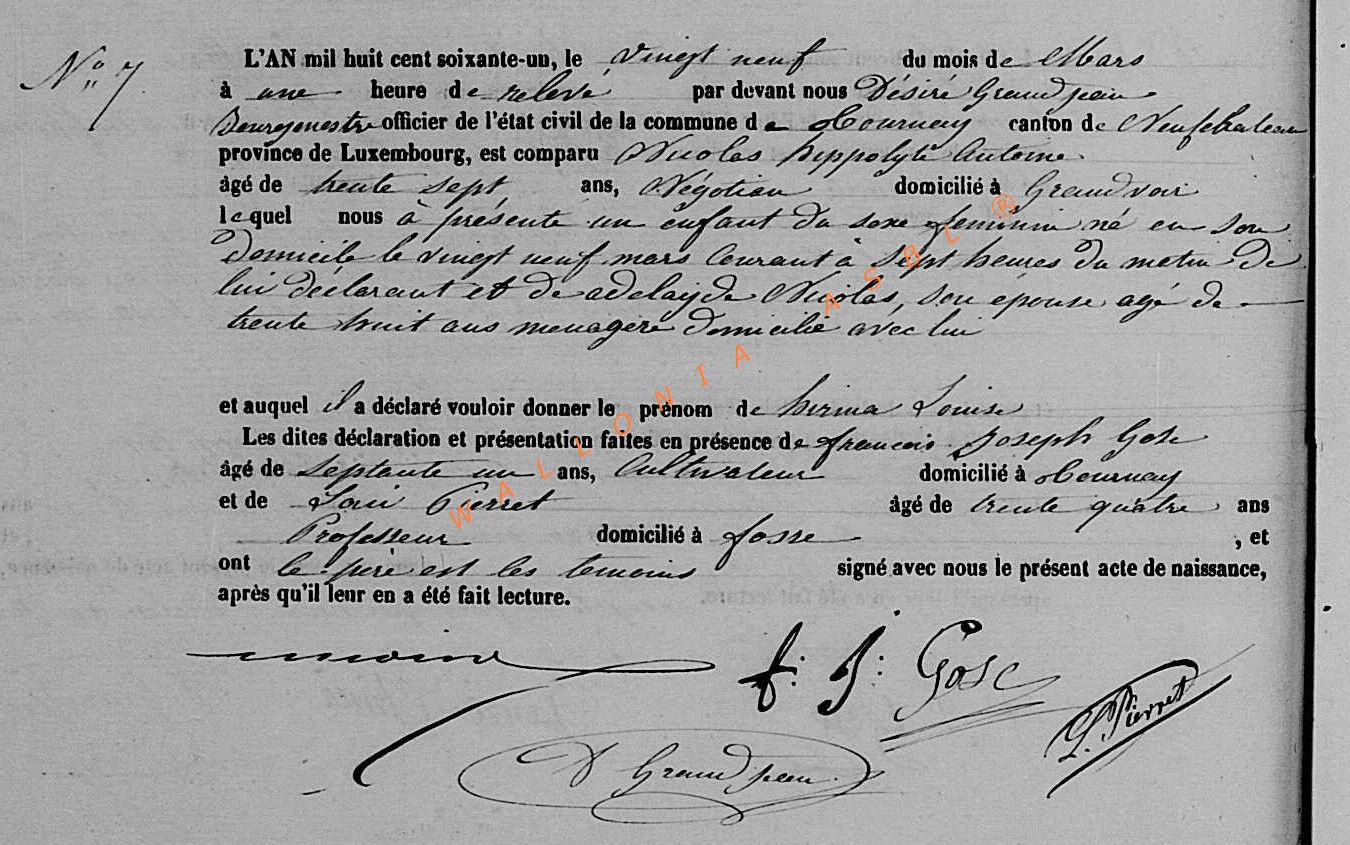 N° 7
L'AN mil huit cent soixante-un, le vingt neuf du mois de Mars
à une heure de relevé par devant nous Désiré Grandjean
Bourgmestre officier de l'état civil de la commune de Tournay canton de Neufchateau
province de Luxembourg, est comparu Nicolas hippolyte Antoine
âgé de trente sept ans, Négotian domicilié à Grandvoir
lequel nous à présenté un enfant du sexe feminin né en son
domicile le vingt neuf mars Courant à sept heures du matin de
lui déclarant et de adelayde Nicolas, son épouse agé de
trente huit ans menagère domicilié avec lui
et auquel il a déclaré vouloir donner le prénom de hirma Louise
Les dites déclaration et présentation faites en présence de francois Joseph Gose
âgé de septante un ans, Cultivateur domicilié à Tournay
et de Loui Pierret âgé de trente quatre ans
Professeur domicilié à fosse , et
ont le père est les temoins signé avec nous le présent acte de naissance,
après qu'il leur en a été fait lecture.
f: J: Gose
L. Pierret
D Grandjean
WALLONIA ASBL ®